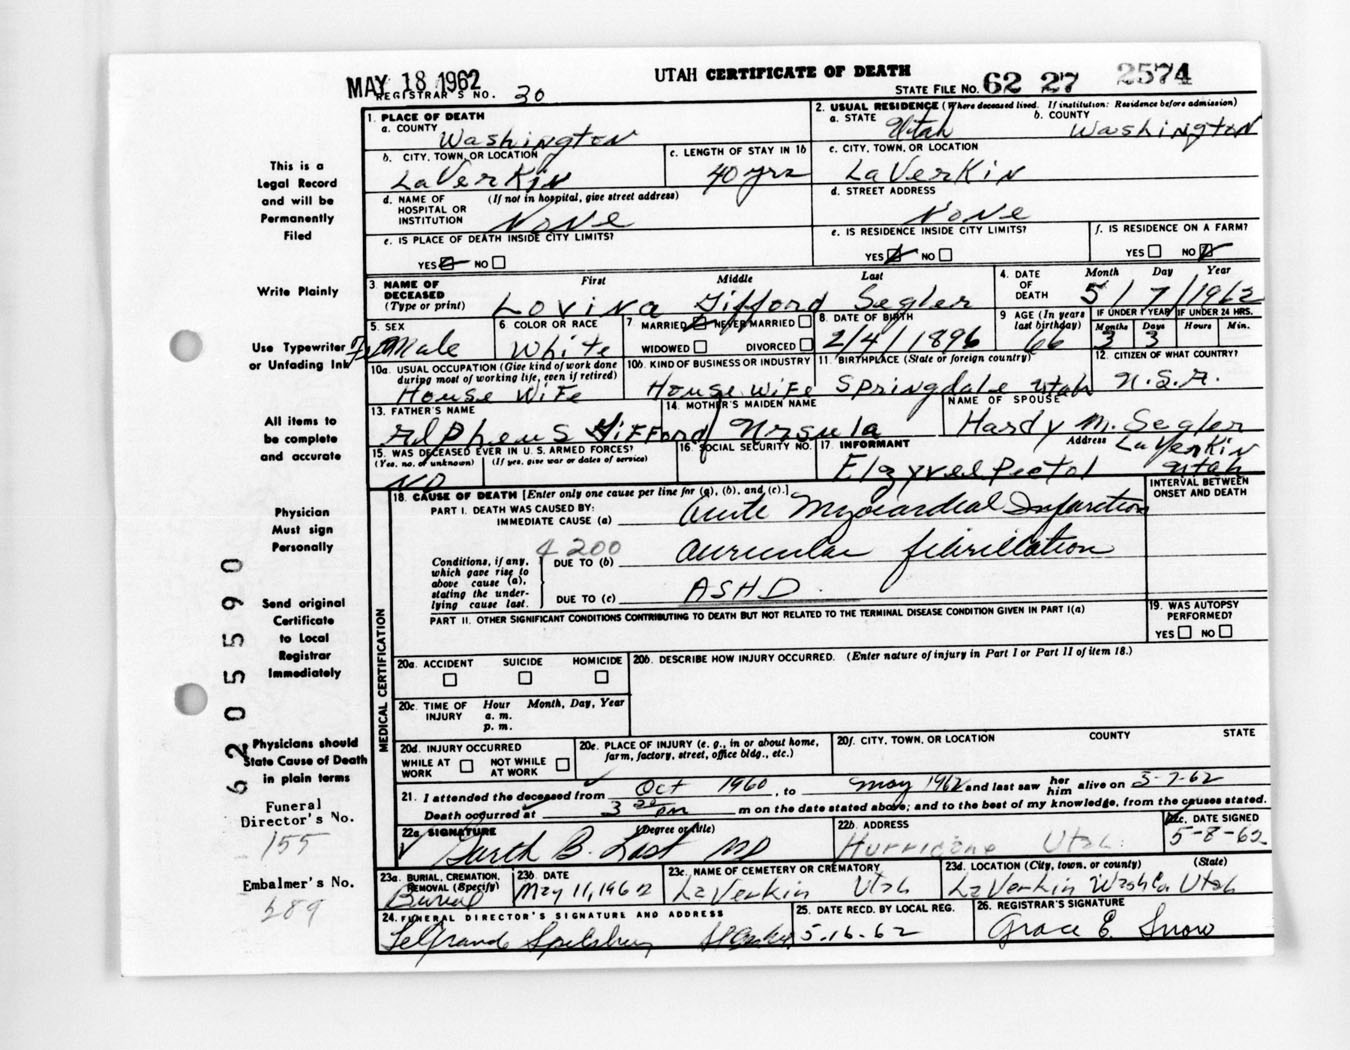 MAY 18 1962
UTAH CERTIFICATE OF DEATH
REGISTRAR'S NO. 30
STATE FILE NO. 62 27 2574
1. PLACE OF DEATH
a. COUNTY Washington
2. USUAL RESIDENCE (Where deceased lived. If institution: Residence before admission)
a. STATE Utah b. COUNTY Washington
b. CITY, TOWN, OR LOCATION LaVerkin
c. LENGTH OF STAY IN 1b 40 yrs
c. CITY, TOWN, OR LOCATION LaVerkin
d. NAME OF HOSPITAL OR INSTITUTION (If not in hospital, give street address) None
d. STREET ADDRESS None
e. IS PLACE OF DEATH INSIDE CITY LIMITS?
YES NO
e. IS RESIDENCE INSIDE CITY LIMITS?
YES NO
f. IS RESIDENCE ON A FARM?
YES NO
3. NAME OF DECEASED (Type or print)
First Middle Last
Lovina Gifford Segler
4. DATE OF DEATH
Month Day Year
5/7/1962
5. SEX FeMale
6. COLOR OR RACE White
7 MARRIED NEVER MARRIED
WIDOWED DIVORCED
8. DATE OF BIRTH 2/4/1896
9. AGE (In years last birthday) 66
IF UNDER 1 YEAR IF UNDER 24 HRS.
Months Days Hours Min.
3 3
10a. USUAL OCCUPATION (Give kind of work done during most of working life, even if retired)
House Wife
10b. KIND OF BUSINESS OR INDUSTRY
House Wife
11. BIRTHPLACE (State or foreign country)
Springdale Utah
12. CITIZEN OF WHAT COUNTRY?
U.S.A.
13. FATHER'S NAME
Alpheus Gifford
14. MOTHER'S MAIDEN NAME
Ursula
NAME OF SPOUSE
Hardy M. Segler
15. WAS DECEASED EVER IN U. S. ARMED FORCES?
(Yes, no, or unknown) (If yes, give war or dates of service)
NO
16. SOCIAL SECURITY NO.
17. INFORMANT Address
Elzyvel Pectol LaVerkin Utah
18. CAUSE OF DEATH [Enter only one cause per line for (a), (b), and (c).]
INTERVAL BETWEEN ONSET AND DEATH
PART I. DEATH WAS CAUSED BY:
IMMEDIATE CAUSE (a) Acute Myocardial Infarction
4200
Conditions, if any, which gave rise to above cause (a), stating the underlying cause last.
DUE TO (b) Auricular fibrillation
DUE TO (c) ASHD
PART II. OTHER SIGNIFICANT CONDITIONS CONTRIBUTING TO DEATH BUT NOT RELATED TO THE TERMINAL DISEASE CONDITION GIVEN IN PART I(a)
19. WAS AUTOPSY PERFORMED?
YES NO
MEDICAL CERTIFICATION
20a. ACCIDENT SUICIDE HOMICIDE
20b. DESCRIBE HOW INJURY OCCURRED. (Enter nature of injury in Part I or Part II of item 18.)
20c. TIME OF INJURY Hour Month, Day, Year
a. m.
p. m.
20d. INJURY OCCURRED
WHILE AT WORK NOT WHILE AT WORK
20e. PLACE OF INJURY (e. g., in or about home, farm, factory, street, office bldg., etc.)
20f. CITY, TOWN, OR LOCATION COUNTY STATE
21. I attended the deceased from Oct 1960, to May 1962 and last saw her him alive on 5-7-62
Death occurred at 3 pm m on the date stated above; and to the best of my knowledge, from the causes stated.
22a SIGNATURE (Degree or title)
Garth B. Last MD
22b. ADDRESS
Hurricane Utah.
22c. DATE SIGNED
5-8-62
23a. BURIAL, CREMATION, REMOVAL (Specify)
Burial
23b DATE
May 11, 1962
23c. NAME OF CEMETERY OR CREMATORY
LaVerkin Utah
23d. LOCATION (City, town, or county) (State)
LaVerkin Wash Co. Utah
24. FUNERAL DIRECTOR'S SIGNATURE AND ADDRESS
LeGrande Spilsbury
25. DATE RECD. BY LOCAL REG.
5-16-62
26. REGISTRAR'S SIGNATURE
Grace E. Snow
This is a
Legal Record
and will be
Permanently
Filed
Write Plainly
Use Typewriter
or Unfading Ink
All items to
be complete
and accurate
Physician
Must sign
Personally
Send original
Certificate
to Local
Registrar
Immediately
Physicians should
State Cause of Death
in plain terms
Funeral
Director's No.
155
Embalmer's No.
289
6205590